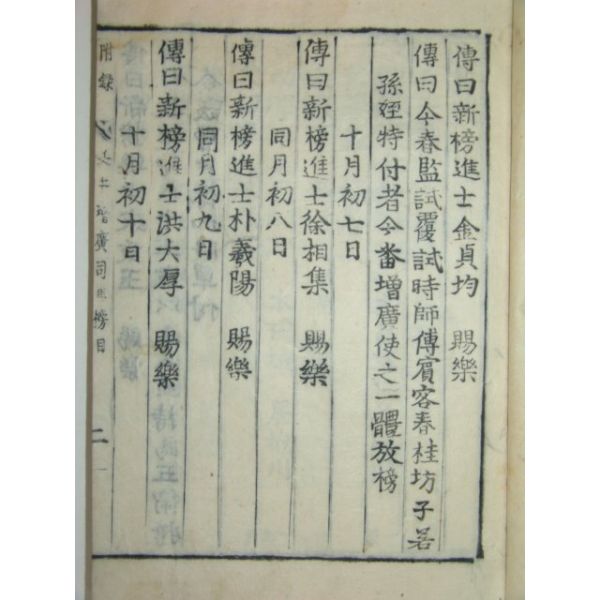 傳曰新榜進士金貞均 賜樂
傳曰今春監試覆試時師傅賓客春桂坊子婿
孫姪特付者今番增廣使之一體放榜
十月初七日
傳曰新榜進士徐相集 賜樂
同月初八日
傳曰新榜進士朴羲陽 賜樂
同月初九日
傳曰新榜進士洪大厚 賜樂
十月初十日
附錄 增廣司馬榜目 二